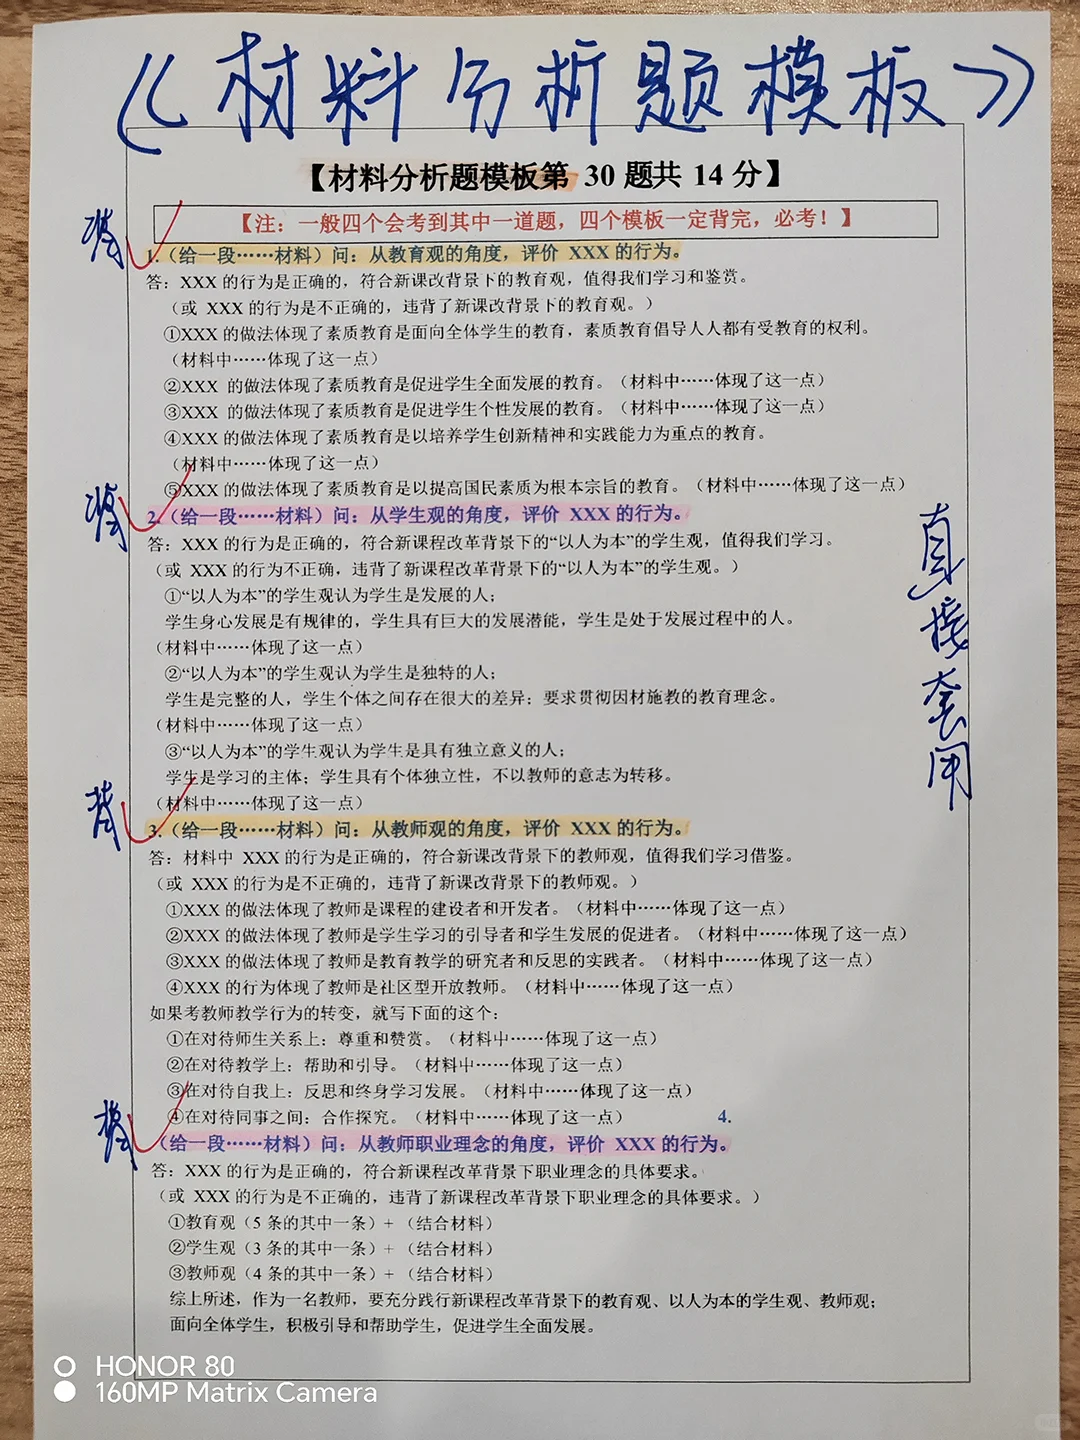 《材料分析题模板》
【材料分析题模板第 30 题共 14 分】
【注：一般四个会考到其中一道题，四个模板一定背完，必考！】
1.（给一段……材料）问：从教育观的角度，评价 XXX 的行为。
答：XXX 的行为是正确的，符合新课改背景下的教育观，值得我们学习和鉴赏。
（或 XXX 的行为是不正确的，违背了新课改背景下的教育观。）
①XXX 的做法体现了素质教育是面向全体学生的教育，素质教育倡导人人都有受教育的权利。
（材料中……体现了这一点）
②XXX 的做法体现了素质教育是促进学生全面发展的教育。（材料中……体现了这一点）
③XXX 的做法体现了素质教育是促进学生个性发展的教育。（材料中……体现了这一点）
④XXX 的做法体现了素质教育是以培养学生创新精神和实践能力为重点的教育。
（材料中……体现了这一点）
⑤XXX 的做法体现了素质教育是以提高国民素质为根本宗旨的教育。（材料中……体现了这一点）
2.（给一段……材料）问：从学生观的角度，评价 XXX 的行为。
答：XXX 的行为是正确的，符合新课程改革背景下的“以人为本”的学生观，值得我们学习。
（或 XXX 的行为不正确，违背了新课程改革背景下的“以人为本”的学生观。）
①“以人为本”的学生观认为学生是发展的人；
学生身心发展是有规律的，学生具有巨大的发展潜能，学生是处于发展过程中的人。
（材料中……体现了这一点）
②“以人为本”的学生观认为学生是独特的人；
学生是完整的人，学生个体之间存在很大的差异；要求贯彻因材施教的教育理念。
（材料中……体现了这一点）
③“以人为本”的学生观认为学生是具有独立意义的人；
学生是学习的主体；学生具有个体独立性，不以教师的意志为转移。
（材料中……体现了这一点）
背
3.（给一段……材料）问：从教师观的角度，评价 XXX 的行为。
答：材料中 XXX 的行为是正确的，符合新课改背景下的教师观，值得我们学习借鉴。
（或 XXX 的行为是不正确的，违背了新课改背景下的教师观。）
①XXX 的做法体现了教师是课程的建设者和开发者。（材料中……体现了这一点）
②XXX 的做法体现了教师是学生学习的引导者和学生发展的促进者。（材料中……体现了这一点）
③XXX 的做法体现了教师是教育教学的研究者和反思的实践者。（材料中……体现了这一点）
④XXX 的行为体现了教师是社区型开放教师。（材料中……体现了这一点）
如果考教师教学行为的转变，就写下面的这个：
①在对待师生关系上：尊重和赞赏。（材料中……体现了这一点）
②在对待教学上：帮助和引导。（材料中……体现了这一点）
③在对待自我上：反思和终身学习发展。（材料中……体现了这一点）
④在对待同事之间：合作探究。（材料中……体现了这一点） 4.
（给一段……材料）问：从教师职业理念的角度，评价 XXX 的行为。
答：XXX 的行为是正确的，符合新课程改革背景下职业理念的具体要求。
（或 XXX 的行为是不正确的，违背了新课程改革背景下职业理念的具体要求。）
①教育观（5 条的其中一条）+（结合材料）
②学生观（3 条的其中一条）+（结合材料）
③教师观（4 条的其中一条）+（结合材料）
综上所述，作为一名教师，要充分践行新课程改革背景下的教育观、以人为本的学生观、教师观；
面向全体学生，积极引导和帮助学生，促进学生全面发展。
直接套用
HONOR 80
160MP Matrix Camera